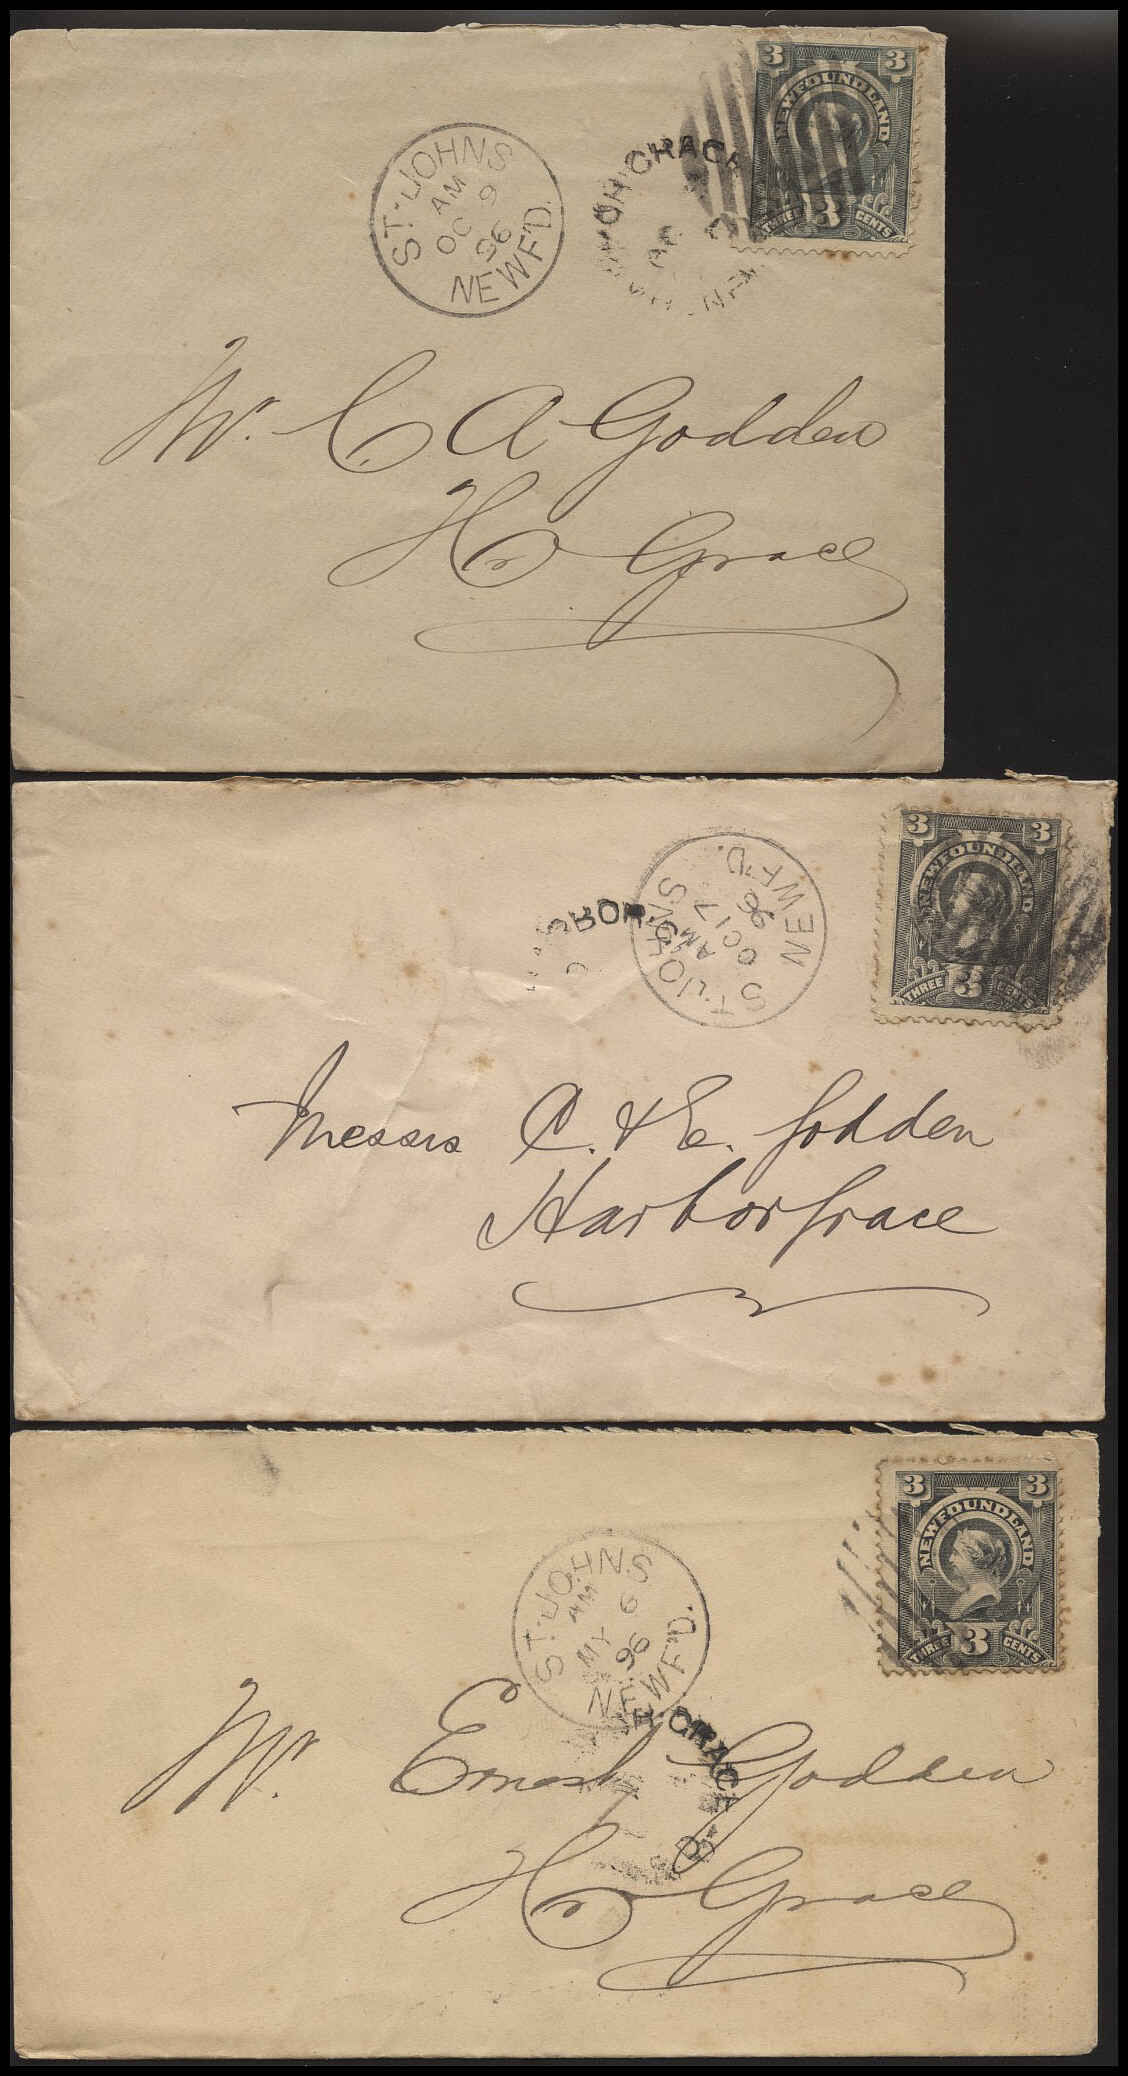 3 3
NEWFOUNDLAND
THREE 3 CENTS
ST. JOHNS
AM
OC 9
96
NEWF'D.
GRACE
Mr. C A Godden
Hr Grace
3 3
NEWFOUNDLAND
THREE 3 CENTS
ST. JOHNS
AM
OC 17
96
NEWF'D.
Messrs C. & E. Godden
Harbor Grace
3 3
NEWFOUNDLAND
THREE 3 CENTS
ST. JOHNS
AM
MY 6
96
NEWF'D.
GRACE
Mr. Ernest Godden
Hr Grace